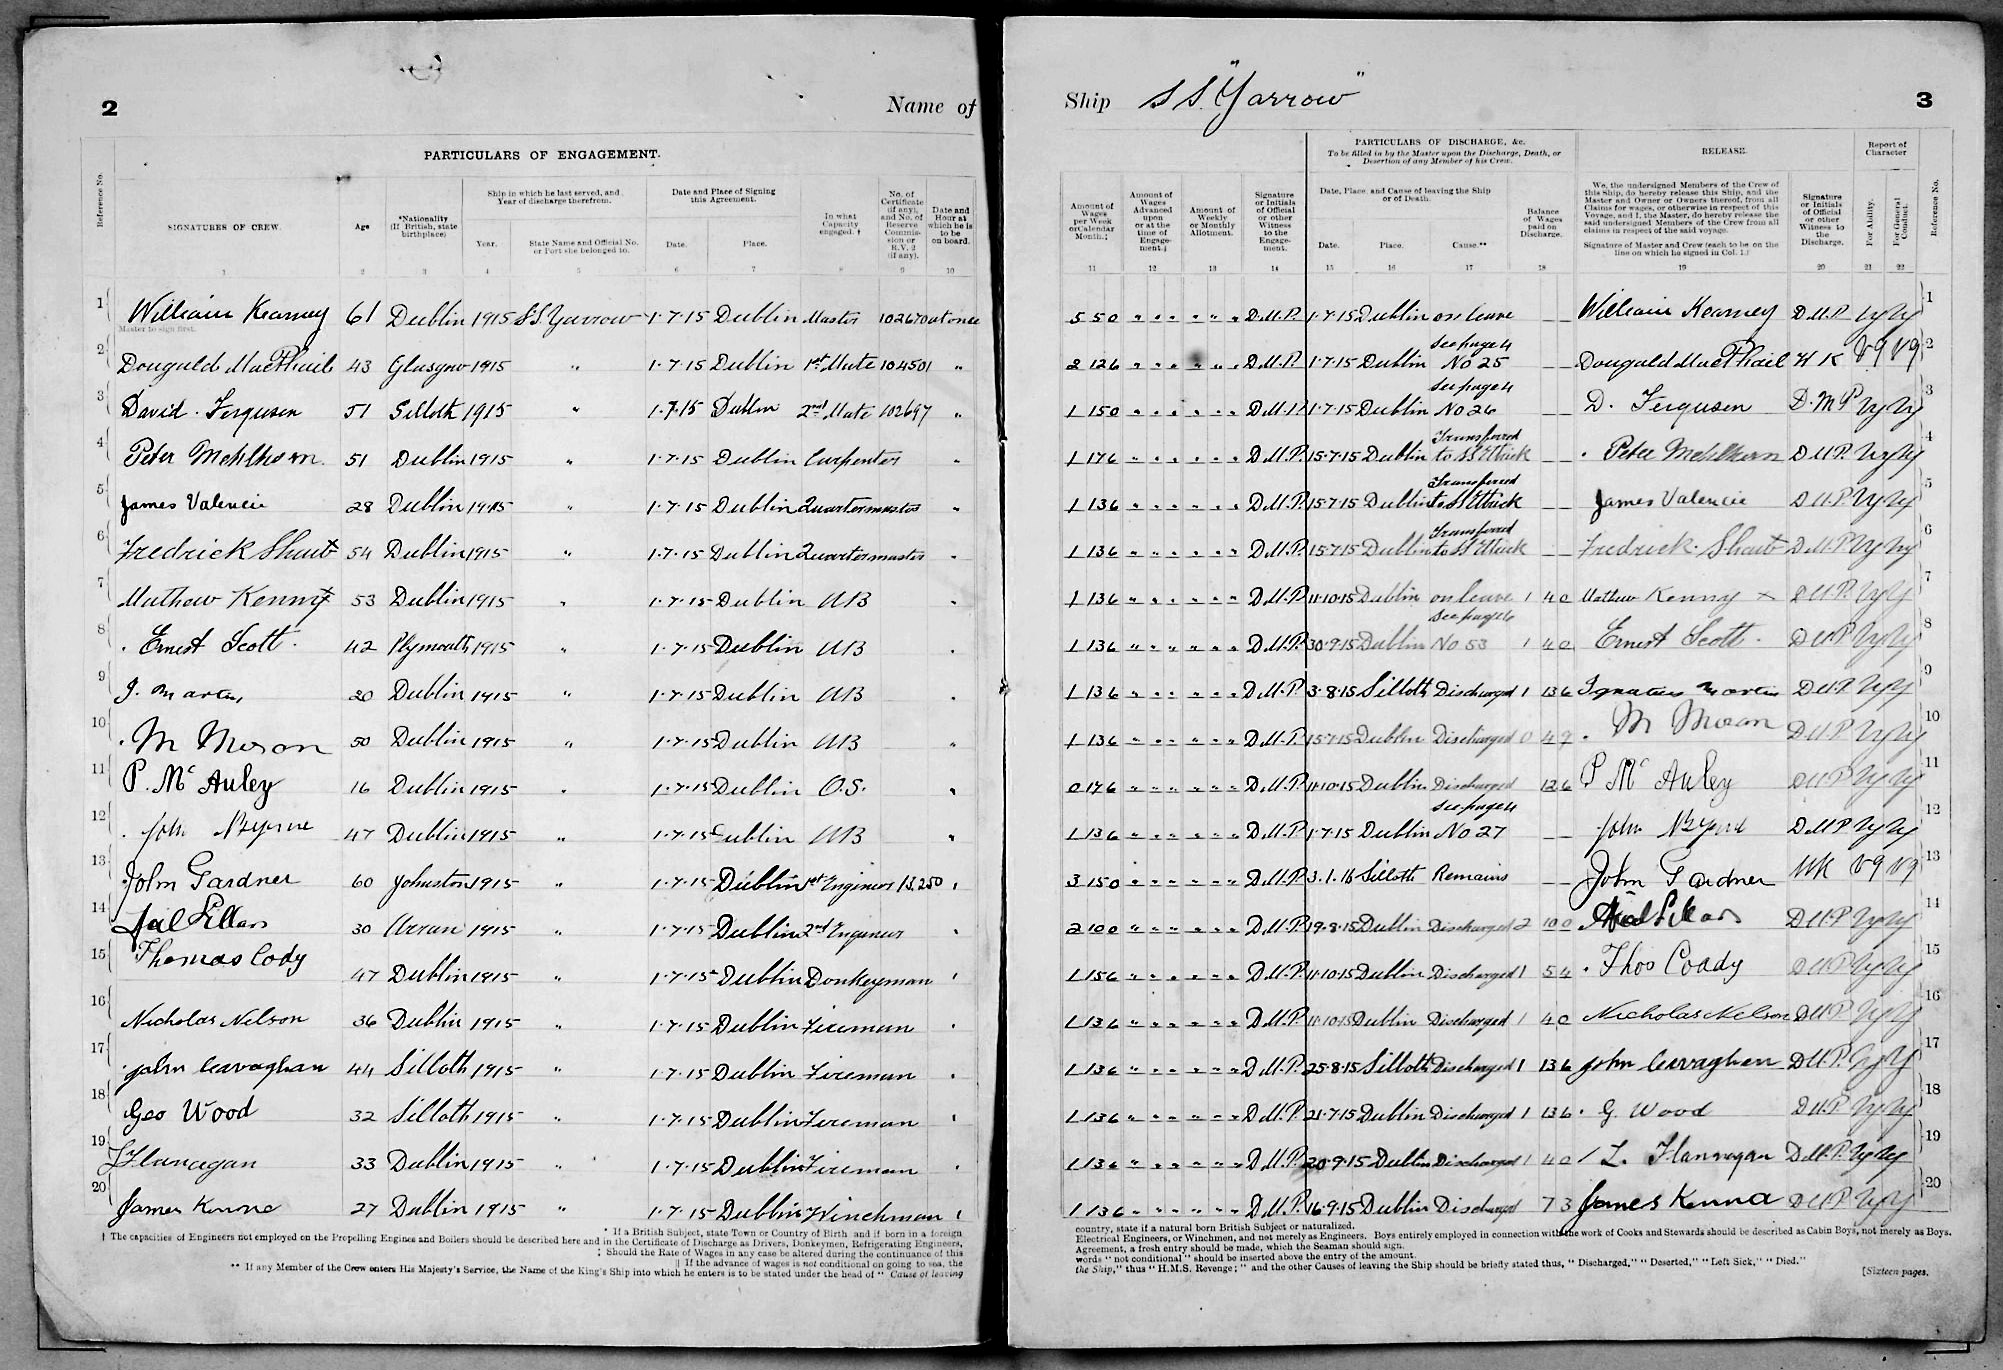 2
Name of
PARTICULARS OF ENGAGEMENT.
Reference No.
SIGNATURES OF CREW.
Age
*Nationality (If British, state birthplace)
Ship in which he last served, and Year of discharge therefrom.
Year.
State Name and Official No. or Port she belonged to.
Date and Place of Signing this Agreement.
Date.
Place.
In what Capacity engaged. †
No. of Certificate (if any), and No. of Reserve Commission or R.V. 2 (if any).
Date and Hour at which he is to be on board.
1 2 3 4 5 6 7 8 9 10
1 William Kearney 61 Dublin 1915 S.S. Yarrow 1.7.15 Dublin Master 102670 at once
Master to sign first.
2 Dougald MacPhail 43 Glasgow 1915 " 1.7.15 Dublin 1st Mate 104501 "
3 David Ferguson 51 Silloth 1915 " 1.7.15 Dublin 2nd Mate 102697 "
4 Peter Mehlhorn 51 Dublin 1915 " 1.7.15 Dublin Carpenter "
5 James Valencie 28 Dublin 1915 " 1.7.15 Dublin Quartermaster "
6 Fredrick Short 54 Dublin 1915 " 1.7.15 Dublin Quartermaster "
7 Mathew Kenny x 53 Dublin 1915 " 1.7.15 Dublin AB "
8 Ernest Scott 42 Plymouth 1915 " 1.7.15 Dublin AB "
9 J. Martin 20 Dublin 1915 " 1.7.15 Dublin AB "
10 M Moran 50 Dublin 1915 " 1.7.15 Dublin AB "
11 P. McAuley 16 Dublin 1915 " 1.7.15 Dublin O.S. "
12 John Byrne 47 Dublin 1915 " 1.7.15 Dublin AB "
13 John Gardner 60 Johnston 1915 " 1.7.15 Dublin 1st Engineer 15250 "
14 Sillars 30 Arran 1915 " 1.7.15 Dublin 2nd Engineer "
15 Thomas Cody 47 Dublin 1915 " 1.7.15 Dublin Donkeyman "
16 Nicholas Nelson 36 Dublin 1915 " 1.7.15 Dublin Fireman "
17 John Cavaghan 44 Silloth 1915 " 1.7.15 Dublin Fireman "
18 Geo Wood 32 Silloth 1915 " 1.7.15 Dublin Fireman "
19 L Flanagan 33 Dublin 1915 " 1.7.15 Dublin Fireman "
20 James Kenna 27 Dublin 1915 " 1.7.15 Dublin Winchman "
* If a British Subject, state Town or Country of Birth and if born in a foreign
† The capacities of Engineers not employed on the Propelling Engines and Boilers should be described here and in the Certificate of Discharge as Drivers, Donkeymen, Refrigerating Engineers,
‡ Should the Rate of Wages in any case be altered during the continuance of this
|| If the advance of wages is not conditional on going to sea, the
** If any Member of the Crew enters His Majesty's Service, the Name of the King's Ship into which he enters is to be stated under the head of "Cause of leaving
Ship S.S. "Yarrow"
3
PARTICULARS OF DISCHARGE, &c.
To be filled in by the Master upon the Discharge, Death, or Desertion of any Member of his Crew.
RELEASE.
Report of Character
Amount of Wages per Week or Calendar Month.‡
Amount of Wages Advanced upon or at the time of Engagement.‡
Amount of Weekly or Monthly Allotment.
Signature or Initials of Official or other Witness to the Engagement.
Date, Place, and Cause of leaving the Ship or of Death.
Date.
Place.
Cause.**
Balance of Wages paid on Discharge.
We, the undersigned Members of the Crew of this Ship, do hereby release this Ship, and the Master and Owner or Owners thereof, from all Claims for wages, or otherwise in respect of this Voyage, and I, the Master, do hereby release the said undersigned Members of the Crew from all claims in respect of the said voyage.
Signature of Master and Crew (each to be on the line on which he signed in Col. 1.)
Signature or Initials of Official or other Witness to the Discharge.
For Ability.
For General Conduct.
Reference No.
11 12 13 14 15 16 17 18 19 20 21 22
5 5 0 " " " " " " D.M.P. 1.7.15 Dublin on leave — — William Kearney D.M.P. Vg Vg 1
see page 4
2 12 6 " " " " " " D.M.P. 1.7.15 Dublin No 25 — — Dougald MacPhail W K Vg Vg 2
see page 4
1 15 0 " " " " " " D.M.P. 1.7.15 Dublin No 26 — — D. Ferguson D.M.P Vg Vg 3
Transferred
1 17 6 " " " " " " D.M.P. 15.7.15 Dublin to SS Ettrick — — Peter Mehlhorn D.M.P. Vg Vg 4
Transferred
1 13 6 " " " " " " D.M.P. 15.7.15 Dublin to SS Ettrick — — James Valencie D.M.P. Vg Vg 5
Transferred
1 13 6 " " " " " " D.M.P. 15.7.15 Dublin to SS Ettrick — — Fredrick Short D.M.P. Vg Vg 6
1 13 6 " " " " " " D.M.P. 11.10.15 Dublin on leave 1 4 0 Mathew Kenny x D.M.P. Vg Vg 7
see page 6
1 13 6 " " " " " " D.M.P. 30.9.15 Dublin No 53 1 4 0 Ernest Scott D.M.P. Vg Vg 8
1 13 6 " " " " " " D.M.P. 3.8.15 Silloth Discharged 1 13 6 Ignatius Martin D.M.P. Vg Vg 9
1 13 6 " " " " " " D.M.P. 15.7.15 Dublin Discharged 0 4 9 M Moran D.M.P. Vg Vg 10
0 17 6 " " " " " " D.M.P. 11.10.15 Dublin Discharged 12 6 P McAuley D.M.P. Vg Vg 11
see page 4
1 13 6 " " " " " " D.M.P. 1.7.15 Dublin No 27 — — John Byrne D.M.P. Vg Vg 12
3 15 0 " " " " " " D.M.P. 3.1.16 Silloth Remains — — John Gardner WK Vg Vg 13
2 10 0 " " " " " " D.M.P. 19.8.15 Dublin Discharged 2 10 0 Neil Sillars D.M.P. Vg Vg 14
1 15 6 " " " " " " D.M.P. 11.10.15 Dublin Discharged 1 5 4 Thos Coady D.M.P. Vg Vg 15
1 13 6 " " " " " " D.M.P. 11.10.15 Dublin Discharged 1 4 0 Nicholas Nelson D.M.P. Vg Vg 16
1 13 6 " " " " " " D.M.P. 25.8.15 Silloth Discharged 1 13 6 John Cavaghan D.M.P. Vg Vg 17
1 13 6 " " " " " " D.M.P. 21.7.15 Dublin Discharged 1 13 6 G. Wood D.M.P. Vg Vg 18
1 13 6 " " " " " " D.M.P. 20.9.15 Dublin Discharged 1 4 0 L. Flannagan D.M.P. Vg Vg 19
1 13 6 " " " " " " D.M.P. 16.9.15 Dublin Discharged 7 3 James Kenna D.M.P. Vg Vg 20
country, state if a natural born British Subject or naturalized.
Electrical Engineers, or Winchmen, and not merely as Engineers. Boys entirely employed in connection with the work of Cooks and Stewards should be described as Cabin Boys, not merely as Boys.
Agreement, a fresh entry should be made, which the Seaman should sign.
words "not conditional" should be inserted above the entry of the amount.
the Ship," thus "H.M.S. Revenge;" and the other Causes of leaving the Ship should be briefly stated thus, "Discharged," "Deserted," "Left Sick," "Died."
[Sixteen pages.